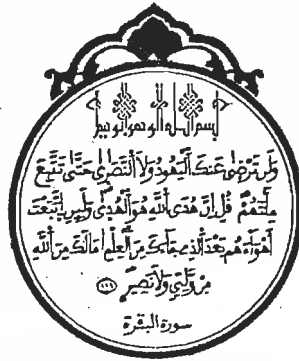 بسم الله الرحمن الرحيم
وَلَن تَرْضَىٰ عَنكَ ٱلْيَهُودُ وَلَا ٱلنَّصَٰرَىٰ حَتَّىٰ تَتَّبِعَ
مِلَّتَهُمْ قُلْ إِنَّ هُدَى ٱللَّهِ هُوَ ٱلْهُدَىٰ وَلَئِنِ ٱتَّبَعْتَ
أَهْوَآءَهُم بَعْدَ ٱلَّذِى جَآءَكَ مِنَ ٱلْعِلْمِ مَا لَكَ مِنَ ٱللَّهِ
مِن وَلِىٍّ وَلَا نَصِيرٍ
سورة البقرة